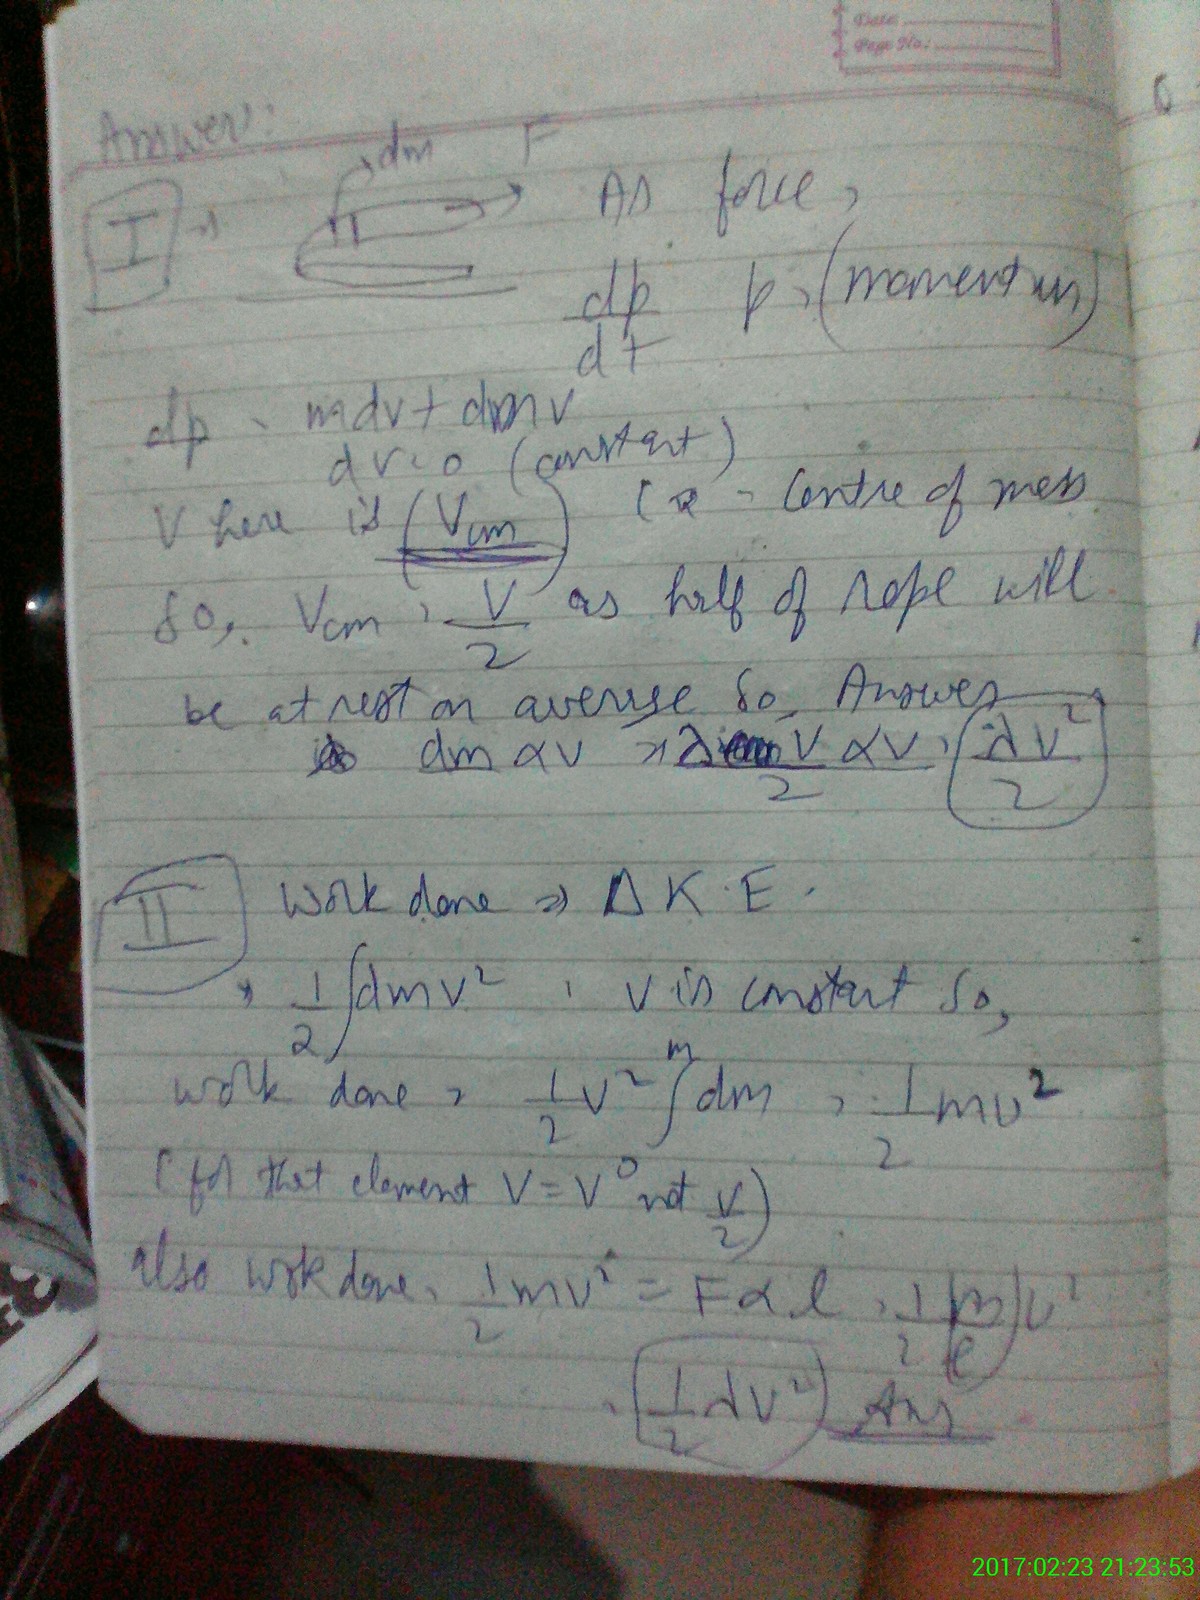 Date:
Page No.:
Answer:
I → dm F As force,
dp/dt p, (momentum)
dp = mdv + dmv
dv = 0 (constant)
V here is (Vcm) ( - Centre of mass
So, Vcm = V/2 as half of rope will
be at rest on average So, Answer
dm × V → λ V/2 × V, λV²/2
II Work done ⇒ Δ K.E.
, 1/2 ∫dmv² , V is constant So,
work done = 1/2 V² ∫ᵐ dm , 1/2 mv²
(for that element V = V not V/2)
also work done, 1/2 mv² = F × l , 1/2 (m/l) v²
, 1/2 λV² Ans
2017:02:23 21:23:53